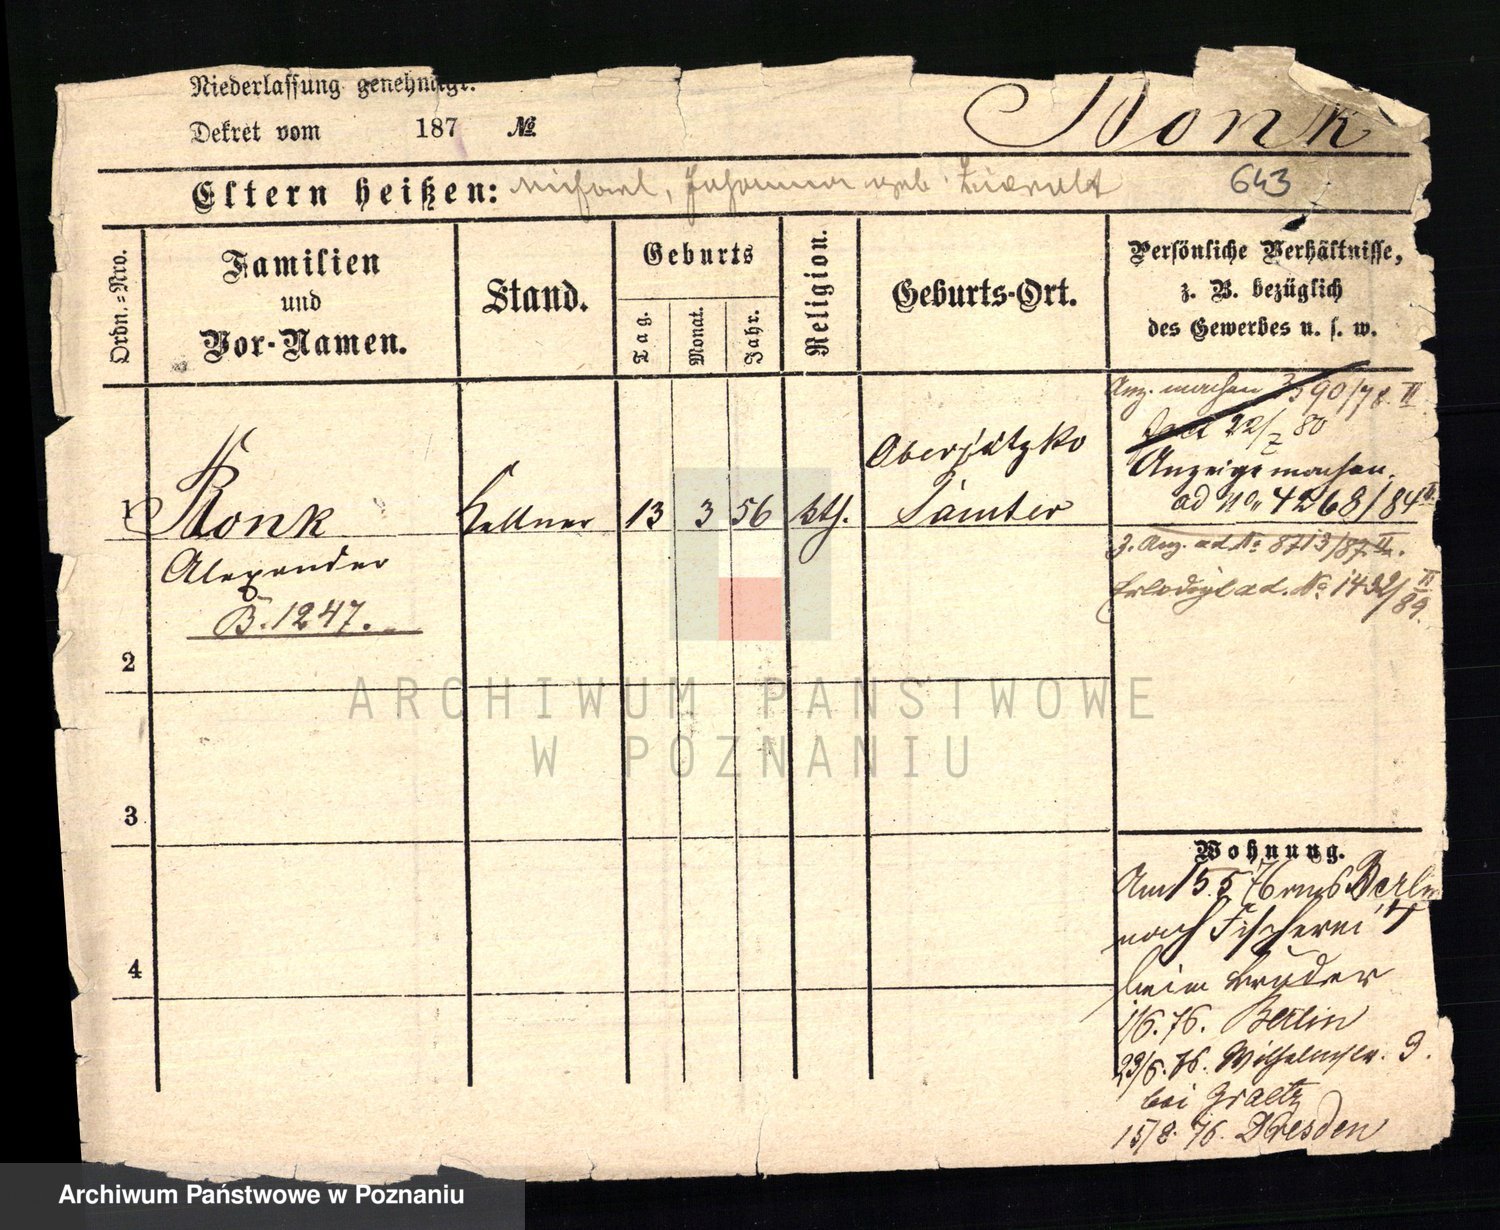 Niederlassung genehmigt.
Dekret vom 187 №
Ronk
Eltern heißen: Michael, Johanna geb.
643
Ordn.=Nro.
Familien
und
Vor-Namen.
Stand.
Geburts
Tag.
Monat.
Jahr.
Religion.
Geburts-Ort.
Persönliche Verhältnisse,
z. B. bezüglich
des Gewerbes u. s. w.
1
Ronk
Alexander
B. 1247.
Kellner
13
3
56
kth.
Obersitzko
Samter
Anz. machen 3590/78. II.
22/7 80
Anzeige machen.
ad No 4268/84 II
z. Anz. ad. No 8713/87 II.
Erledigt ad. No 1432/89. II
2
3
4
Wohnung.
Am 15.5.76 aus Berlin
nach Fischerei 17
beim Bruder
1/6. 76. Berlin
23/6. 76. Wilhelmstr. 9.
bei Graetz
15/8. 76. Dresden
ARCHIWUM PAŃSTWOWE
W POZNANIU
Archiwum Państwowe w Poznaniu